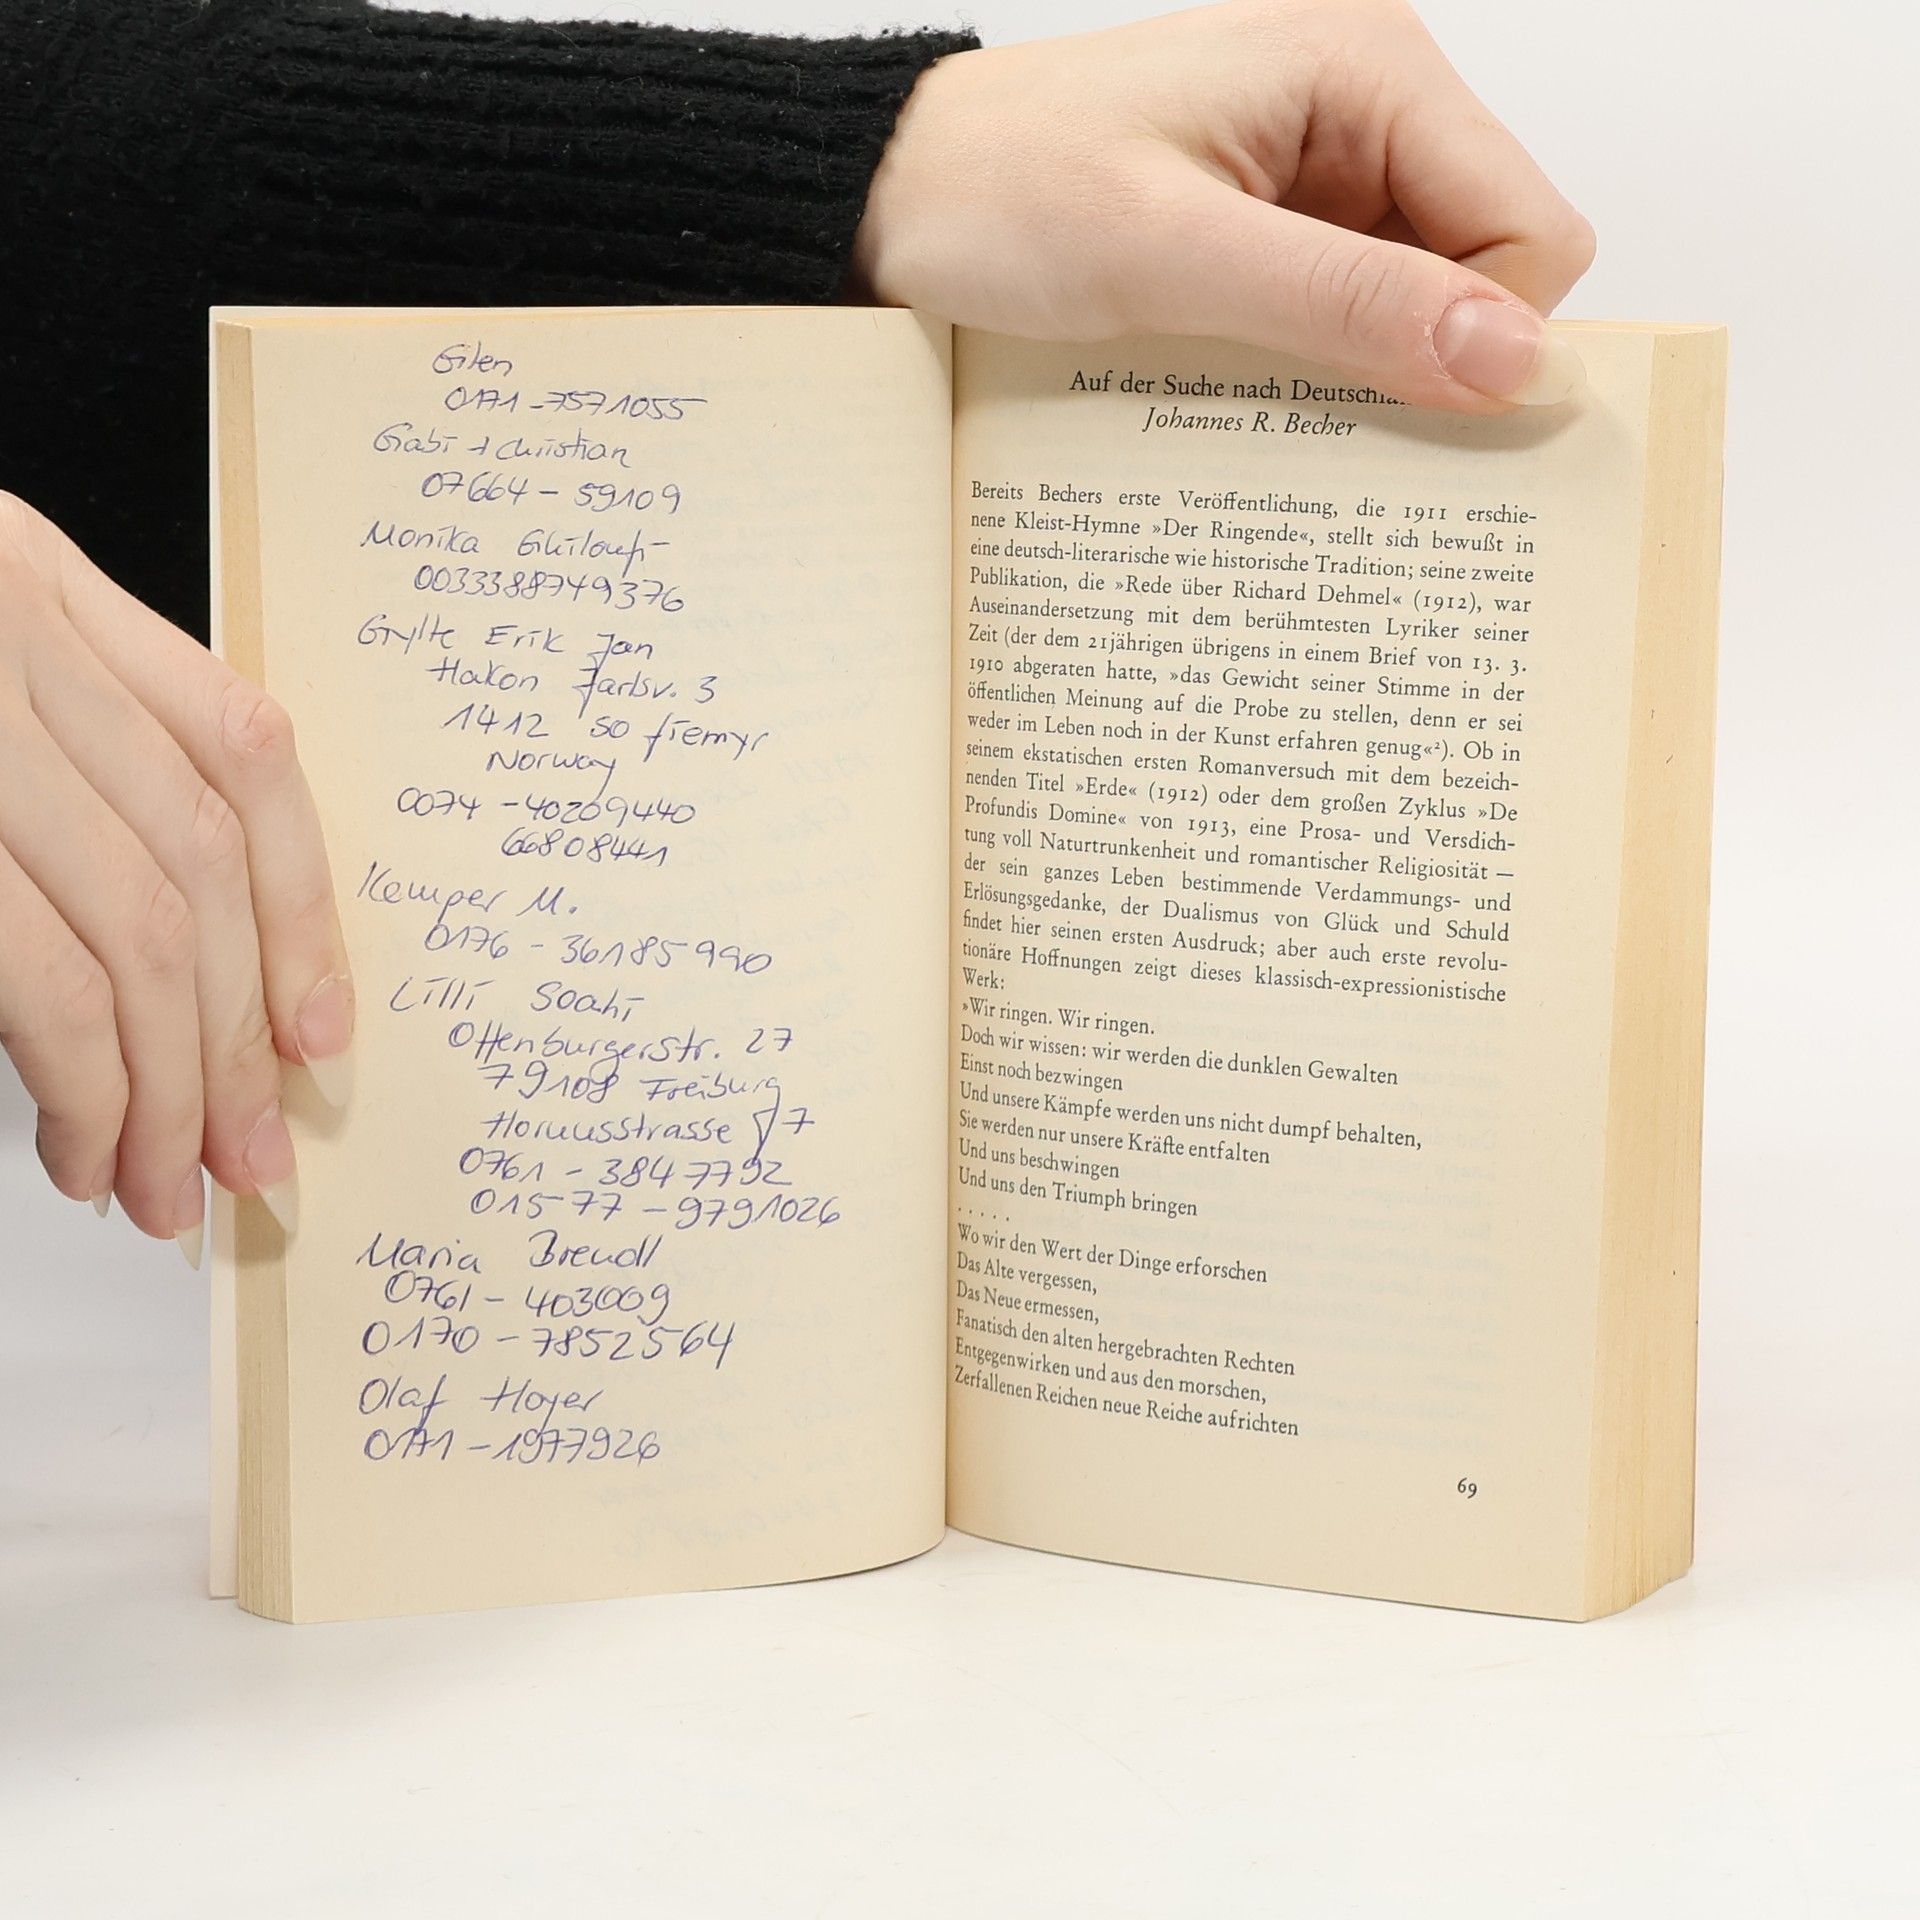 Gilen
0171-7571055
Gabi + Christian
07664 - 59109
Monika
0033388749376
Gylte Erik Jan
Hakon Jarlsv. 3
1412 Sofiemyr
Norway
0074 - 40209440
66808441
Kemper M.
0176 - 36185990
Lilli Soahi
Offenburgerstr. 27
79108 Freiburg
Hornusstrasse 7
0761 - 3847792
01577 - 9791026
Maria Brendl
0761 - 403009
0170 - 7852564
Olaf Hoyer
0171 - 1977926
Auf der Suche nach
Johannes R. Becher
Bereits Bechers erste Veröffentlichung, die 1911 erschie-
nene Kleist-Hymne »Der Ringende«, stellt sich bewußt in
eine deutsch-literarische wie historische Tradition; seine zweite
Publikation, die »Rede über Richard Dehmel« (1912), war
Auseinandersetzung mit dem berühmtesten Lyriker seiner
Zeit (der dem 21jährigen übrigens in einem Brief von 13. 3.
1910 abgeraten hatte, »das Gewicht seiner Stimme in der
öffentlichen Meinung auf die Probe zu stellen, denn er sei
weder im Leben noch in der Kunst erfahren genug«²). Ob in
seinem ekstatischen ersten Romanversuch mit dem bezeich-
nenden Titel »Erde« (1912) oder dem großen Zyklus »De
Profundis Domine« von 1913, eine Prosa- und Versdich-
tung voll Naturtrunkenheit und romantischer Religiosität —
der sein ganzes Leben bestimmende Verdammungs- und
Erlösungsgedanke, der Dualismus von Glück und Schuld
findet hier seinen ersten Ausdruck; aber auch erste revolu-
tionäre Hoffnungen zeigt dieses klassisch-expressionistische
Werk:
»Wir ringen. Wir ringen.
Doch wir wissen: wir werden die dunklen Gewalten
Einst noch bezwingen
Und unsere Kämpfe werden uns nicht dumpf behalten,
Sie werden nur unsere Kräfte entfalten
Und uns beschwingen
Und uns den Triumph bringen
. . . . .
Wo wir den Wert der Dinge erforschen
Das Alte vergessen,
Das Neue ermessen,
Fanatisch den alten hergebrachten Rechten
Entgegenwirken und aus den morschen,
Zerfallenen Reichen neue Reiche aufrichten
69